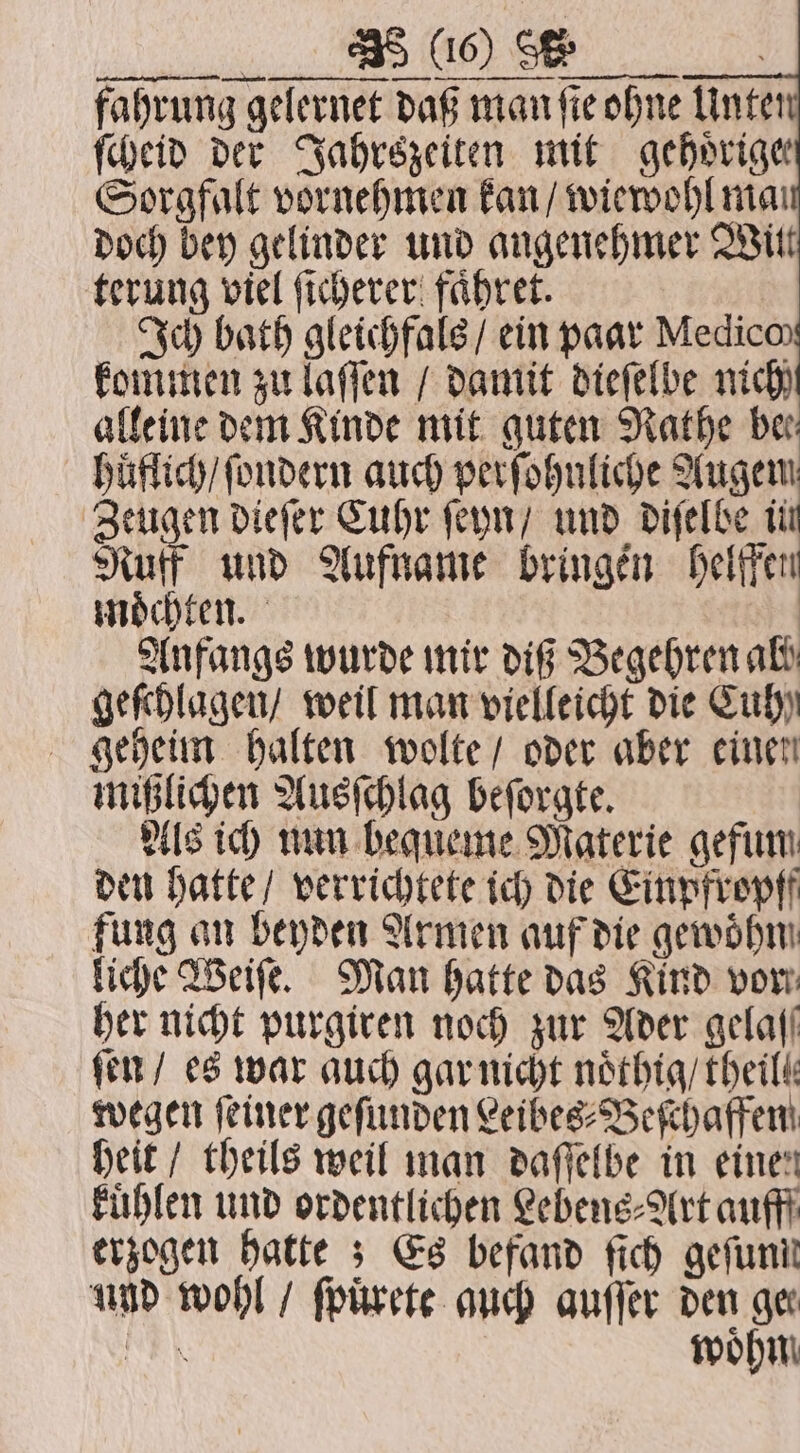 (16)
fahrung gelernet daß man ſie ohne Unter
ſcheid der Jahrszeiten mit gehoͤrige
Sorgfalt vornehmen kan / wiewohl man
doch bey gelinder und angenehmer Wit
terung viel ſicherer faͤhret.
Ich bath gleichfals / ein paar Medicos
kommen zu laſſen / damit dieſelbe nich
alleine dem Kinde mit guten Rathe be
huͤflich / ſondern auch perſohnliche Augen
Zeugen dieſer Cuhr ſeyn / und diſelbe in
Ruff und Aufname bringen helffen
moͤchten.
Anfangs wurde mir diß Begehren ab
geſchlagen / weil man vielleicht die Cuh
geheim halten wolte / oder aber einen
mißlichen Ausſchlag beſorgte.
Als ich nun bequeme Materie gefun
den hatte / verrichtete ich die Einpfropf
fung an beyden Armen auf die gewoͤhn
liche Weiſe. Man hatte das Kind vor
her nicht purgiren noch zur Ader gelaſ
ſen / es war auch gar nicht noͤthig / theils
wegen ſeiner geſunden Leibes-Beſchaffen
heit / theils weil man daſſelbe in einer
kuͤhlen und ordentlichen Lebens-Art auff
erzogen hatte ; Es befand ſich geſund
und wohl / ſpuͤrete auch auſſer den ge
woͤhn